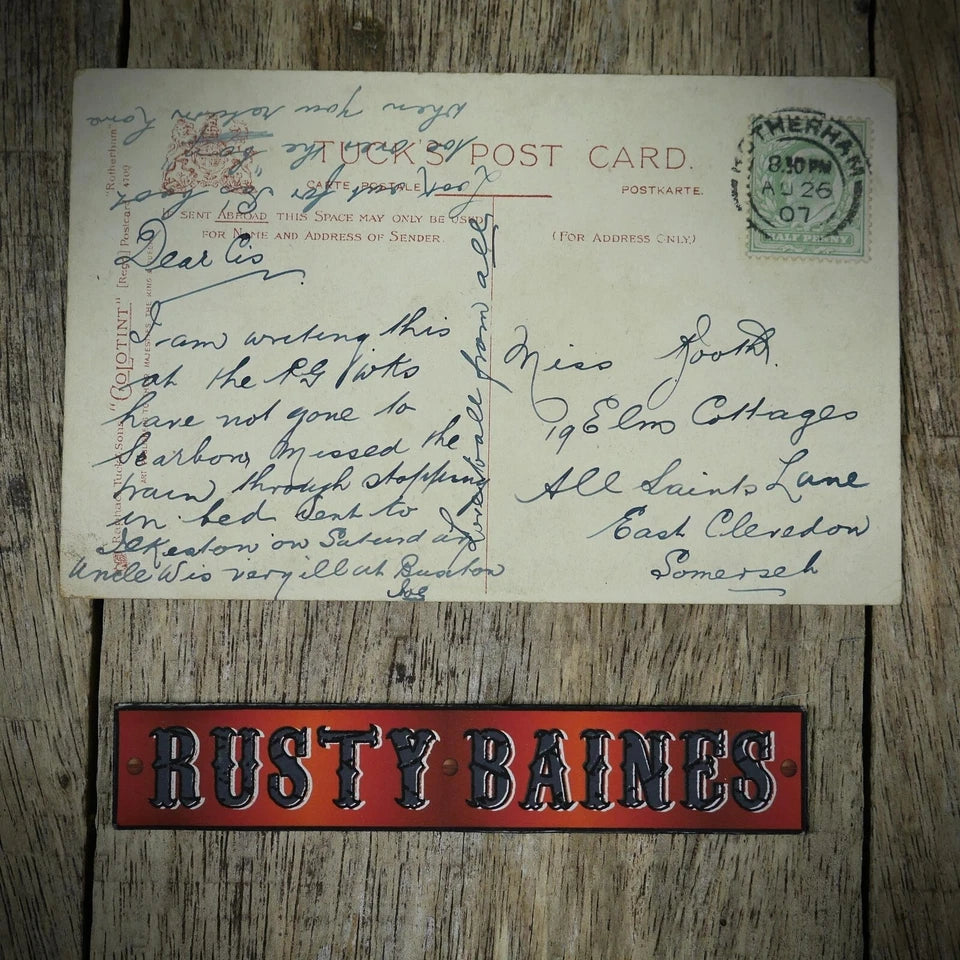 TUCK'S POST CARD.
CARTE POSTALE
POSTKARTE.
SENT ABROAD THIS SPACE MAY ONLY BE USED
FOR NAME AND ADDRESS OF SENDER.
(FOR ADDRESS ONLY.)
ROTHERHAM
8.30 PM
AU 26
07
HALF PENNY
Dear Cis
I am writing this
at the RG Wks
have not gone to
Scarboro, Missed the
train, through stopping
in bed. Went to
Ilkeston on Saturday
Uncle W is very ill at Buxton
Joe
Love to all from all
Look out for
when you return
Miss Rooth.
19 Elms Cottages
All Saints Lane
East Clevedon
Somerset
"COLOTINT"
"Rotherham"
4700
RUSTY BAINES